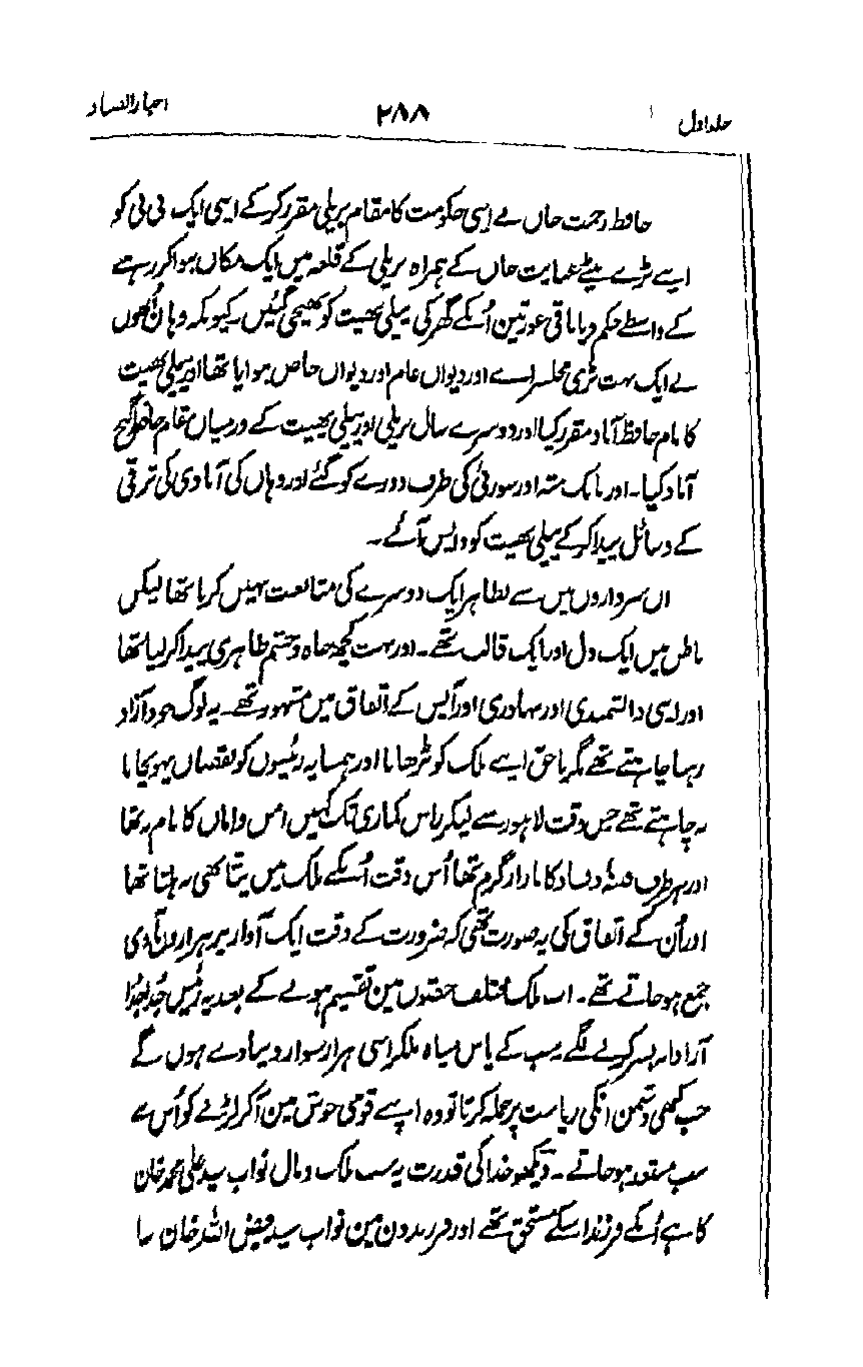 جلد اول ۲۸۸ اخبار الصناديد
حافظ رحمت خاں نے اپنی حکومت کا مقام بریلی مقرر کرکے اپنی ایک بی بی کو
اپنے بڑے بیٹے عنایت خاں کے ہمراہ بریلی کے قلعہ میں ایک مکان بنوا کر رہنے
کے واسطے حکم دیا باقی عورتین اُنکے گھر کی پیلی بھیت کو بھیجی گئیں۔ کیونکہ وہاں اُنھوں
نے ایک بہت بڑی محلسراے اور دیوان عام اور دیوان خاص بنوایا تھا اور پیلی بھیت
کا نام حافظ آباد مقرر کیا اور دوسرے سال بریلی اور پیلی بھیت کے درمیان مقام حافظ گنج
آباد کیا۔ اور نانک متہ اور سورنی کی طرف دورے کو گئے اور وہاں کی آبادی کی ترقی
کے وسائل پیدا کرکے پیلی بھیت کو واپس آئے۔
ان سرداروں میں سے بظاہر ایک دوسرے کی متابعت نہیں کرتا تھا لیکن
باطن میں ایک دل اور ایک قالب تھے۔ اور بہت کچھ جاہ و حشم ظاہری پیدا کر لیا تھا
اور اپنی دانشمندی اور بہادری اور آپس کے اتفاق میں مشہور تھے۔ یہ لوگ خود آزاد
رہنا چاہتے تھے مگر ناحق اپنے ملک کو بڑھانا اور ہمسایہ رئیسوں کو نقصان پہونچانا
نہ چاہتے تھے جس وقت لاہور سے لیکر راس کماری تک کہیں امن و امان کا نام نہ تھا
اور ہر طرف فتنہ و فساد کا بازار گرم تھا اُس وقت اُنکے ملک میں پتا بھی نہ ہلتا تھا
اور اُن کے اتفاق کی یہ صورت تھی کہ ضرورت کے وقت ایک آواز پر ہزاروں آدمی
جمع ہو جاتے تھے۔ اب ملک مختلف حصوں مین تقسیم ہونے کے بعد یہ رئیس جُدا جُدا
آزادانہ بسر کرنے لگے سب کے پاس سپاہ ملکر اسی ہزار سوار و پیادے ہوں گے
جب کبھی دشمن انکی ریاست پر حملہ کرتا تو وہ اپنے قومی جوش مین آکر لڑنے کو اُس سے
سب مستعد ہو جاتے۔ دیکھو خدا کی قدرت یہ سب ملک و مال نواب سید علی محمد خان
کا ہے اُنکے فرزند اسکے مستحق تھے اور فرزندون مین نواب سید فیض اللہ خان سا